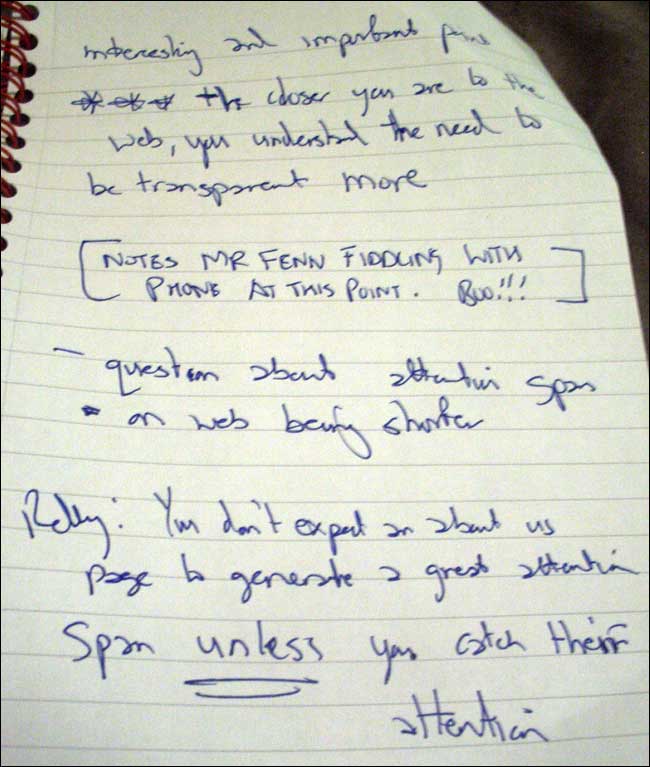 interesting and important point
the closer you are to the
web, you understand the need to
be transparent more
[NOTES MR FENN FIDDLING WITH
PHONE AT THIS POINT. BOO!!!]
- question about attention span
on web being shorter
Relly: You don't expect an about us
page to generate a great attention
span unless you catch their
attention